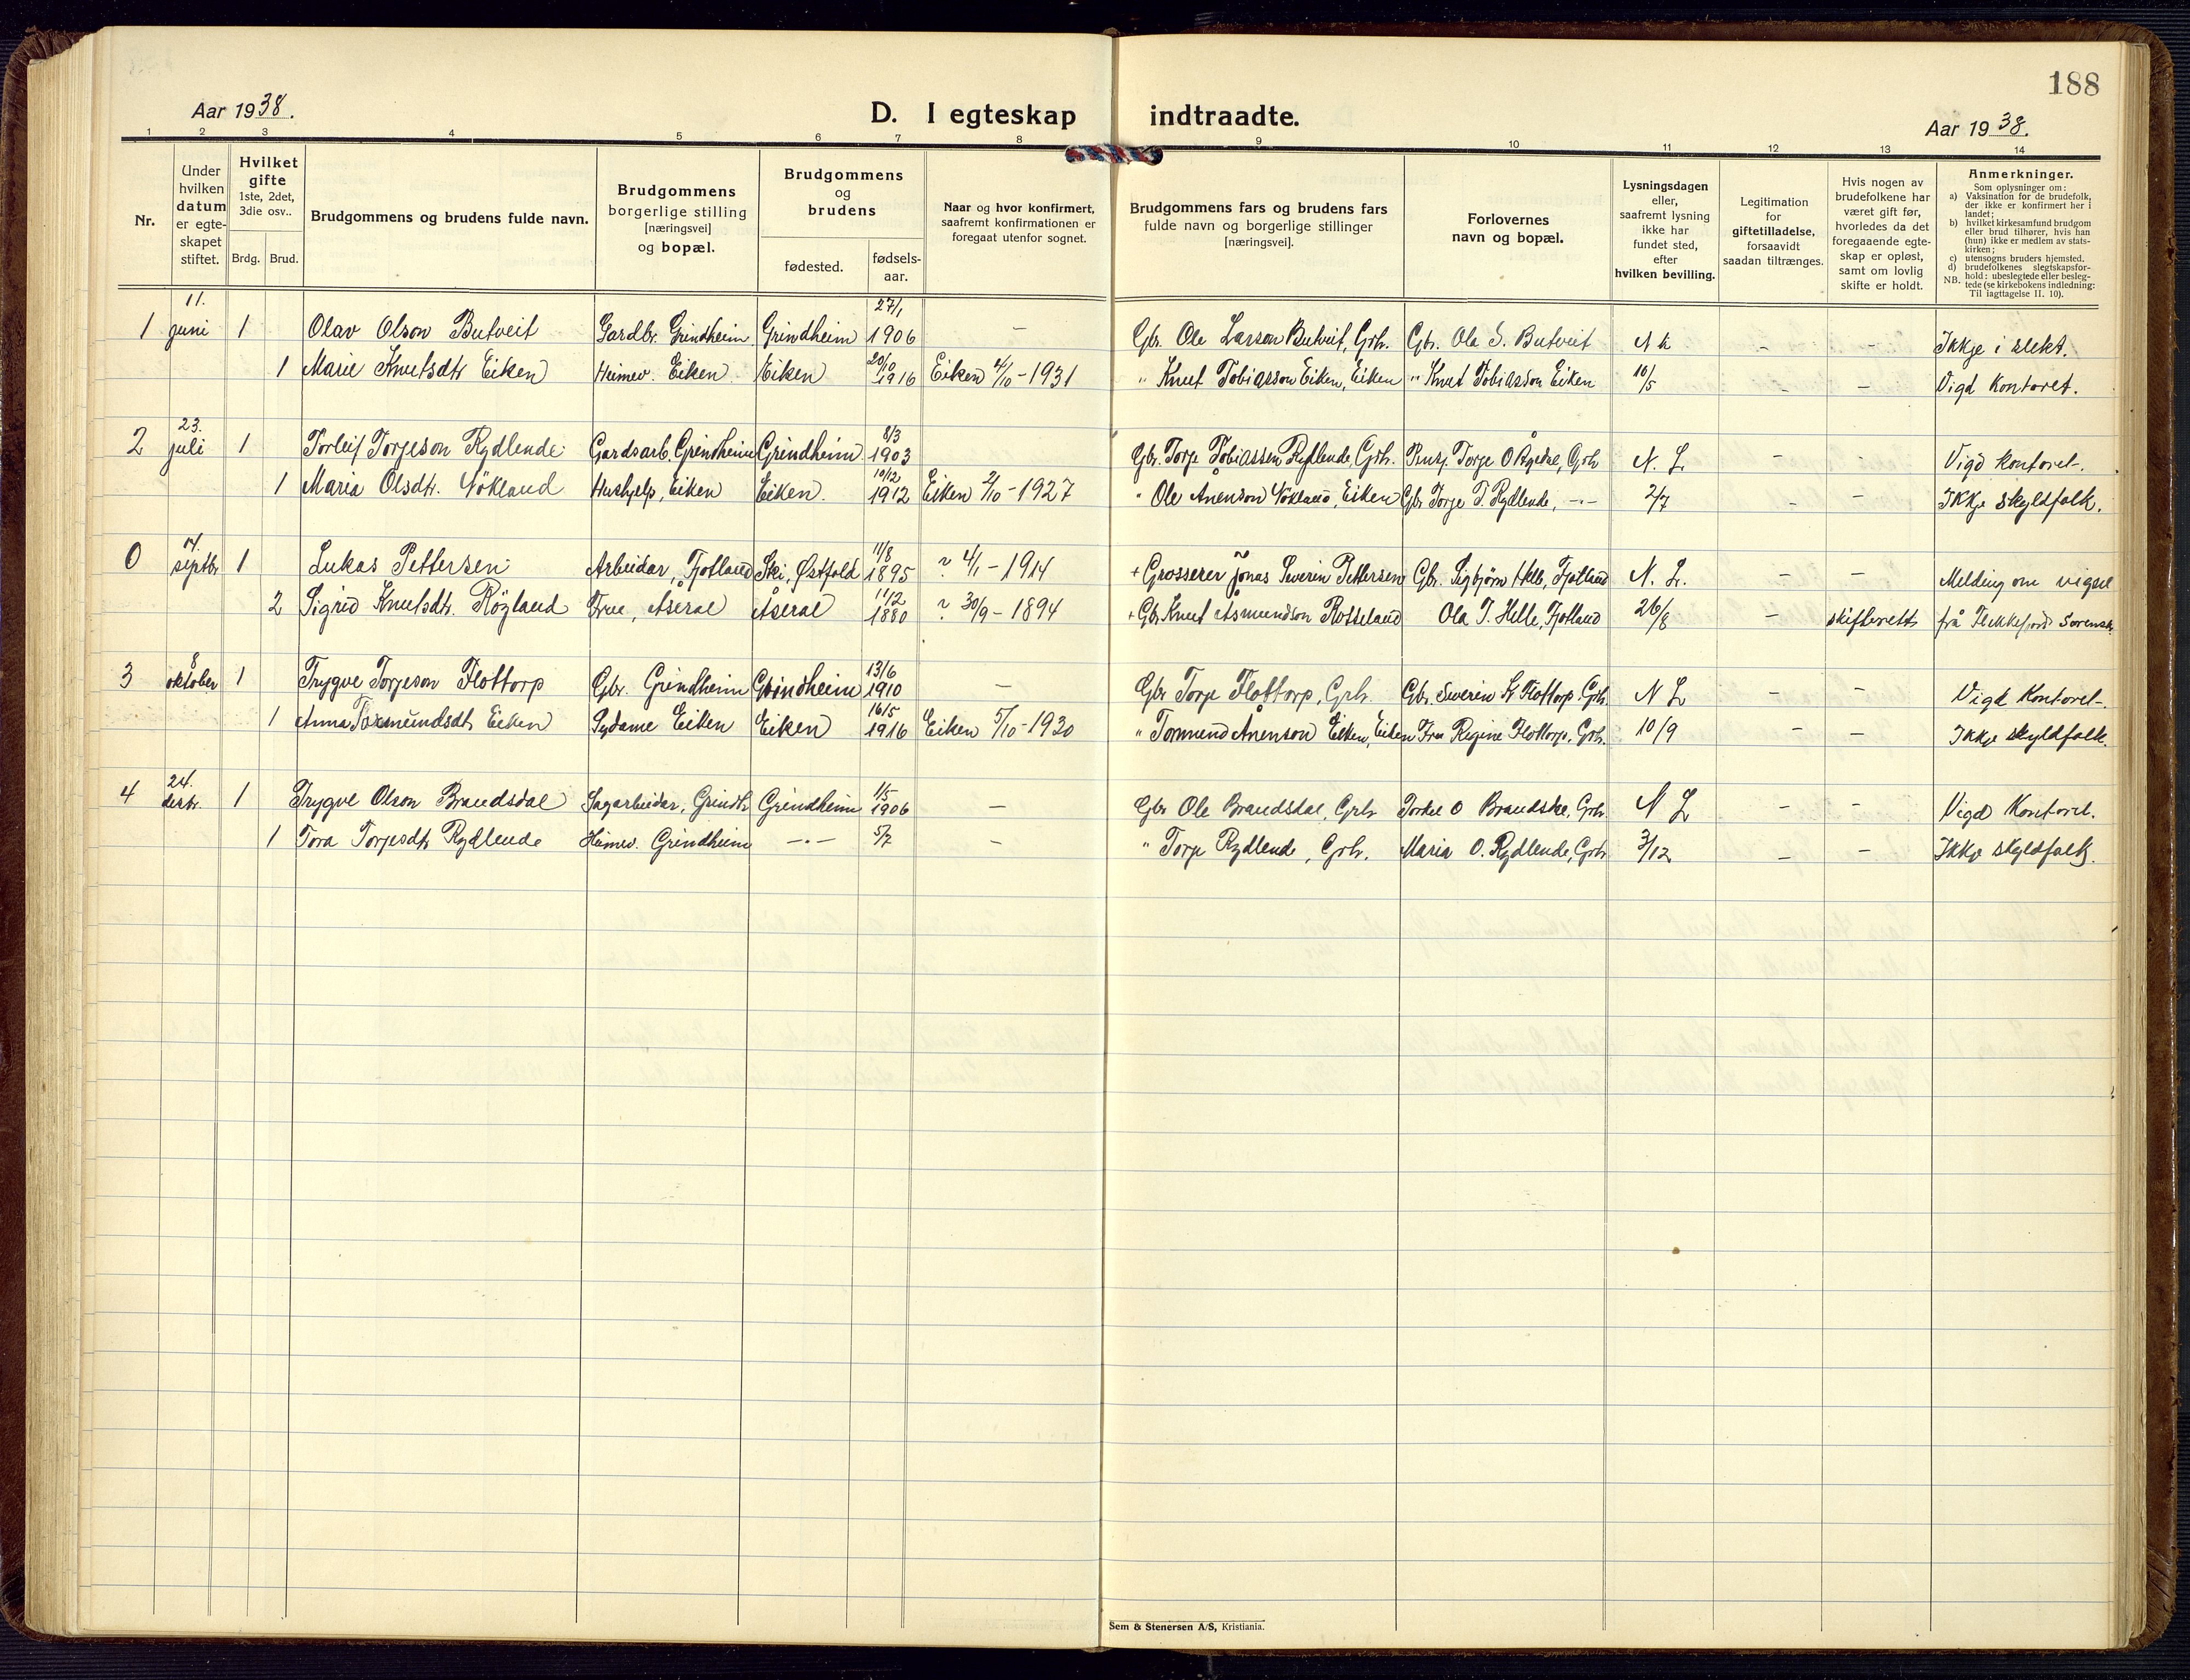 188
Aar 1938.
D. I egteskap indtraadte.
Aar 1938.
1 2 3 4 5 6 7 8 9 10 11 12 13 14
Nr.
Under hvilken datum er egte-skapet stiftet.
Hvilket gifte 1ste, 2det, 3die osv..
Brdg. Brud.
Brudgommens og brudens fulde navn.
Brudgommens borgerlige stilling [næringsvei] og bopæl.
Brudgommens og brudens
fødested.
fødsels-aar.
Naar og hvor konfirmert, saafremt konfirmationen er foregaat utenfor sognet.
Brudgommens fars og brudens fars fulde navn og borgerlige stillinger [næringsvei].
Forlovernes navn og bopæl.
Lysningsdagen eller, saafremt lysning ikke har fundet sted, efter hvilken bevilling.
Legitimation for giftetilladelse, forsaavidt saadan tiltrænges.
Hvis nogen av brudefolkene har været gift før, hvorledes da det foregaaende egte-skap er opløst, samt om lovlig skifte er holdt.
Anmerkninger.
Som oplysninger om:
a) Vaksination for de brudefolk, der ikke er konfirmert her i landet;
b) hvilket kirkesamfund brudgom eller brud tilhører, hvis han (hun) ikke er medlem av stats-kirken;
c) utensogns bruders hjemsted.
d) brudefolkenes slegtskapsfor-hold: ubeslegtede eller besleg-tede (se kirkebokens indledning:
NB. Til iagttagelse II. 10).
11. 27/1
1 juni 1 Olav Olson Butveit Gardbr. Grindheim Grindheim 1906 — Gbr. Ole Larson Butveit, Grh. Gbr. Ola S. Butveit – – Ikkje i slekt.
1 Marie Knutsdtr Eiken Heimev. Eiken Eiken 20/10 1916 Eiken 4/10-1931 " Knut Tobiasson Eiken, Eiken " Knut Tobiasson Eiken 10/5 – – Vigd kontoret.
23. 8/3
2 juli 1 Torleif Torjeson Rydlende Gardsarb. Grindheim Grindheim 1903 Gbr. Torje Tobiassen Rydlende, Grh. Torje O N. L. – - Vigd kontoret.
10/12
1 Maria Olsdtr. Vökland Hushjelp, Eiken Eiken. 1912 Eiken 2/10-1927 " Ole Ånenson Vökland, Eiken Gbr Torje T. Rydlende, -"- 2/7 – – Ikkje skyldfolk.
14. 11/8
0 septbr 1 Lukas Pettersen Arbeidar, Fjotland Ski, Østfold 1895 ? 4/1-1914 + Grosserer Jonas Severin Pettersen Gbr. Sigbjørn Helle, Fjotland N. L. – – Melding om vigsel
11/2
2 Sigrid Knutsdtr. Röyland Frue, Åseral Åseral 1880 ? 30/9-1894 + Gbr Knut Åsmundson Rosseland Ola T. Helle, Fjotland 26/8 – skifterett frå Flekkefjord Sorensk.
8 13/6
3 oktober 1 Trygve Torjeson Flottorp Gbr. Grindheim Grindheim 1910 — Gbr Torje Flottorp, Grh. Gbr. Severin Flottorp. Grh. N L – – Vigd Kontoret.
16/5
1 Anna Tormundsdtr Eiken Sydame Eiken Eiken 1916 Eiken 5/10-1930 " Tormund Ånenson Eiken, Eiken Fru Regine Flottorp, Grh. 10/9 – – Ikkje skyldfolk.
24. 1/5
4 desbr. 1 Trygve Olson Brandsdal Sagarbeidar, Grindh. Grindheim 1906 — Gbr Ole Brandsdal, Grh. Torkel O Brandsdal, Grh. N L – – Vigd Kontoret.
1 Tora Torjesdtr Rydlende Heimev. Grindheim -"- 5/7 – " Torje Rydlende, Grh. Maria O. Rydlende, Grh 3/12 – – Ikkje skyldfolk.
Sem & Stenersen A/S, Kristiania.